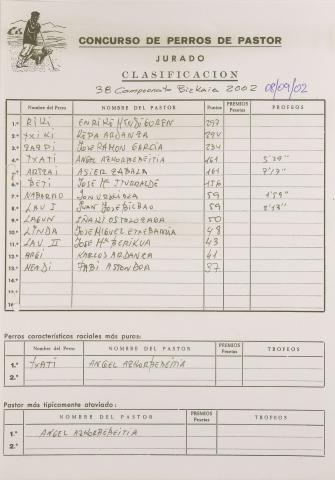 CONCURSO DE PERROS DE PASTOR
JURADO
CLASIFICACION
38 Campeonato Bizkaia 2002 08/09/02
Nombre del Perro NOMBRE DEL PASTOR Puntos PREMIOS Pesetas TROFEOS
1.º RIKI ENRIKE MENDIGUREN 297
2.º TXIKI KEPA ARDANZA 244
3.º JOSE RAMON GARCIA 234
4.º TXATI ANGEL AZKORBEBEITIA 161
5.º ARTZAI ASIER ZABALA 161
6.º BETI JOSE Mª ITURRALDE 156
7.º NABARRO JON 59
8.º LAU I JUAN JOSE BILBAO 59
9.º LAGUN IÑAKI OSTOLOZAGA 50
10.º LINDA JOSE MIGUEL ETXEBARRIA 48
11.º LAU II JOSE Mª BERIKUA 43
12.º ARGI KARLOS ARDANZA 41
13.º MENDI PABI ASTONDOA 37
14.º
15.º
16.º
Perros características raciales más puros:
Nombre del Perro NOMBRE DEL PASTOR PREMIOS Pesetas TROFEOS
1.º TXATI ANGEL AZKORBEBEITIA
2.º
Pastor más típicamente ataviado:
NOMBRE DEL PASTOR PREMIOS Pesetas TROFEOS
1.º ANGEL AZKORBEBEITIA
2.º